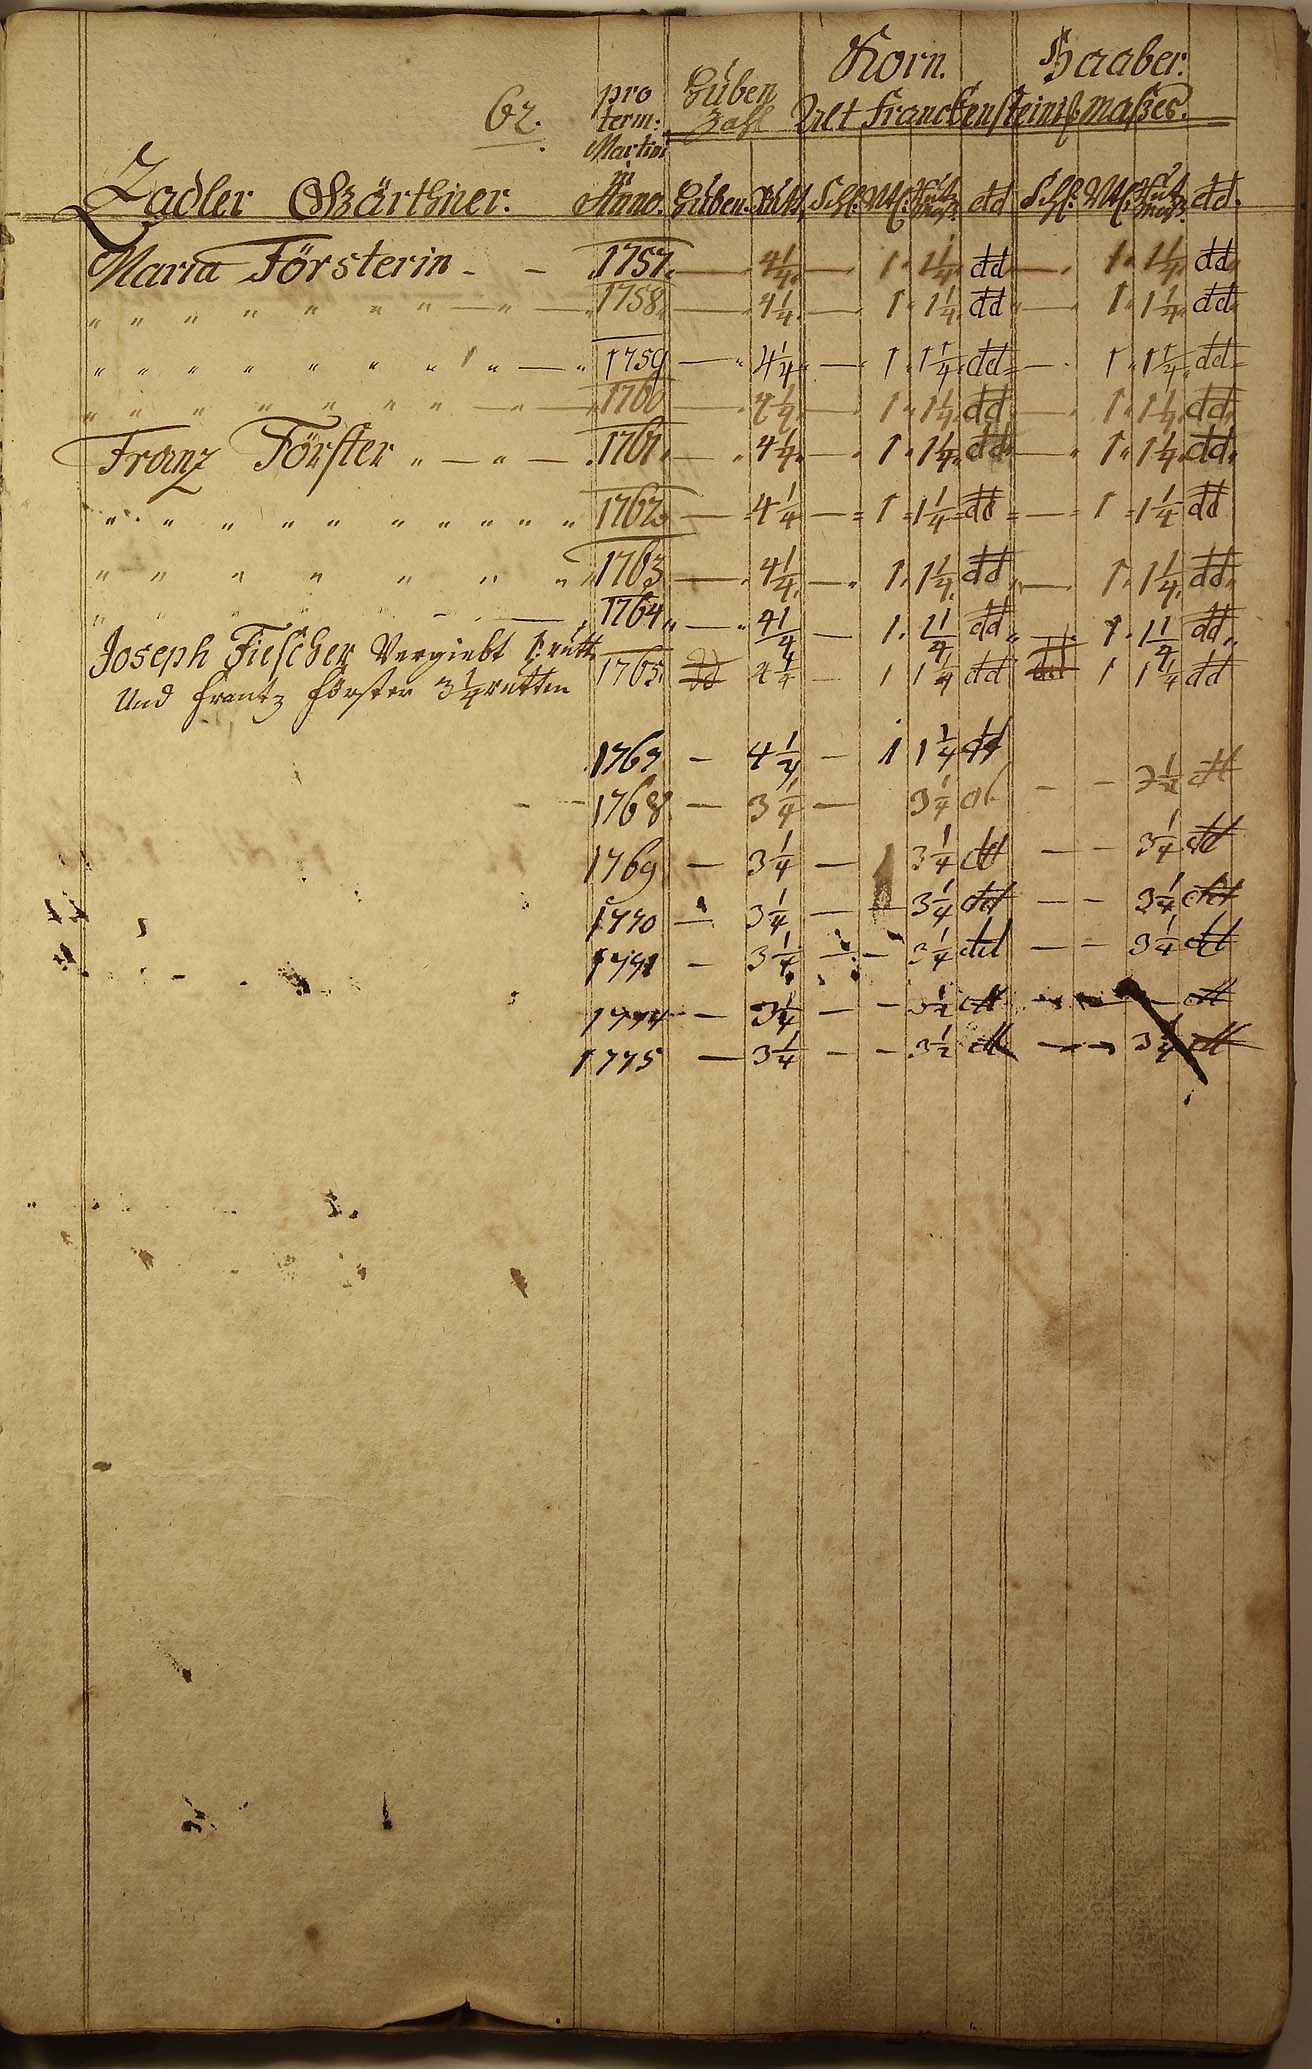 Korn. Haaber.
62. pro Huben
term: Zahl Alt Franckensteinß. maßes.
Martini
in
Zadler Gärthner. Anno. Huben. Rutt. Schl. Mtl. dd Schl. Mtl. dd.
Maria Försterin - - 1757. — 4 1/4. — 1. 1 1/4. dd — 1. 1 1/4. dd
" " " " " " " — " — 1758. — 4 1/4. — 1. 1 1/4. dd — 1. 1 1/4. dd
" " " " " " " " — " 1759 — 4 1/4 — 1. 1 1/4 dd — 1. 1 1/4 dd
" " " " " " " — " — 1760 — 4 1/4 — 1. 1 1/4 dd — 1. 1 1/4 dd
Franz Förster " — " — 1761. — 4 1/4 — 1. 1 1/4 dd — 1. 1 1/4. dd
" " " " " " " " " " " 1762 — 4 1/4 — 1 1 1/4 dd — 1 1 1/4 dd
" " " " " " " " 1763 — 4 1/4. — 1. 1 1/4. dd — 1. 1 1/4. dd
" " " " " - — 1764 " — 4 1/4 — 1. 1 1/4 dd — 1. 1 1/4 dd
Joseph Fiescher Vergiebt 1. rutt
Und Frantz Förster 3 1/4 rutten 1765. dd 4 1/4 — 1 1 1/4 dd dd 1 1 1/4 dd
1767 — 4 1/4 — 1 1 1/4 dd
1768 — 3 1/4 — 3 1/4 dd — — 3 1/4 dd
1769 — 3 1/4 — 3 1/4 dd — — 3 1/4 dd
1770 — 3 1/4 — — 3 1/4 dd — — 3 1/4 dd
1771 — 3 1/4 — — 3 1/4 dd — — 3 1/4 dd
1774 — 3 1/4 — — 3 1/2 dd — — dd
1775 — 3 1/4 — — 3 1/2 dd — — 3 1/4 dd